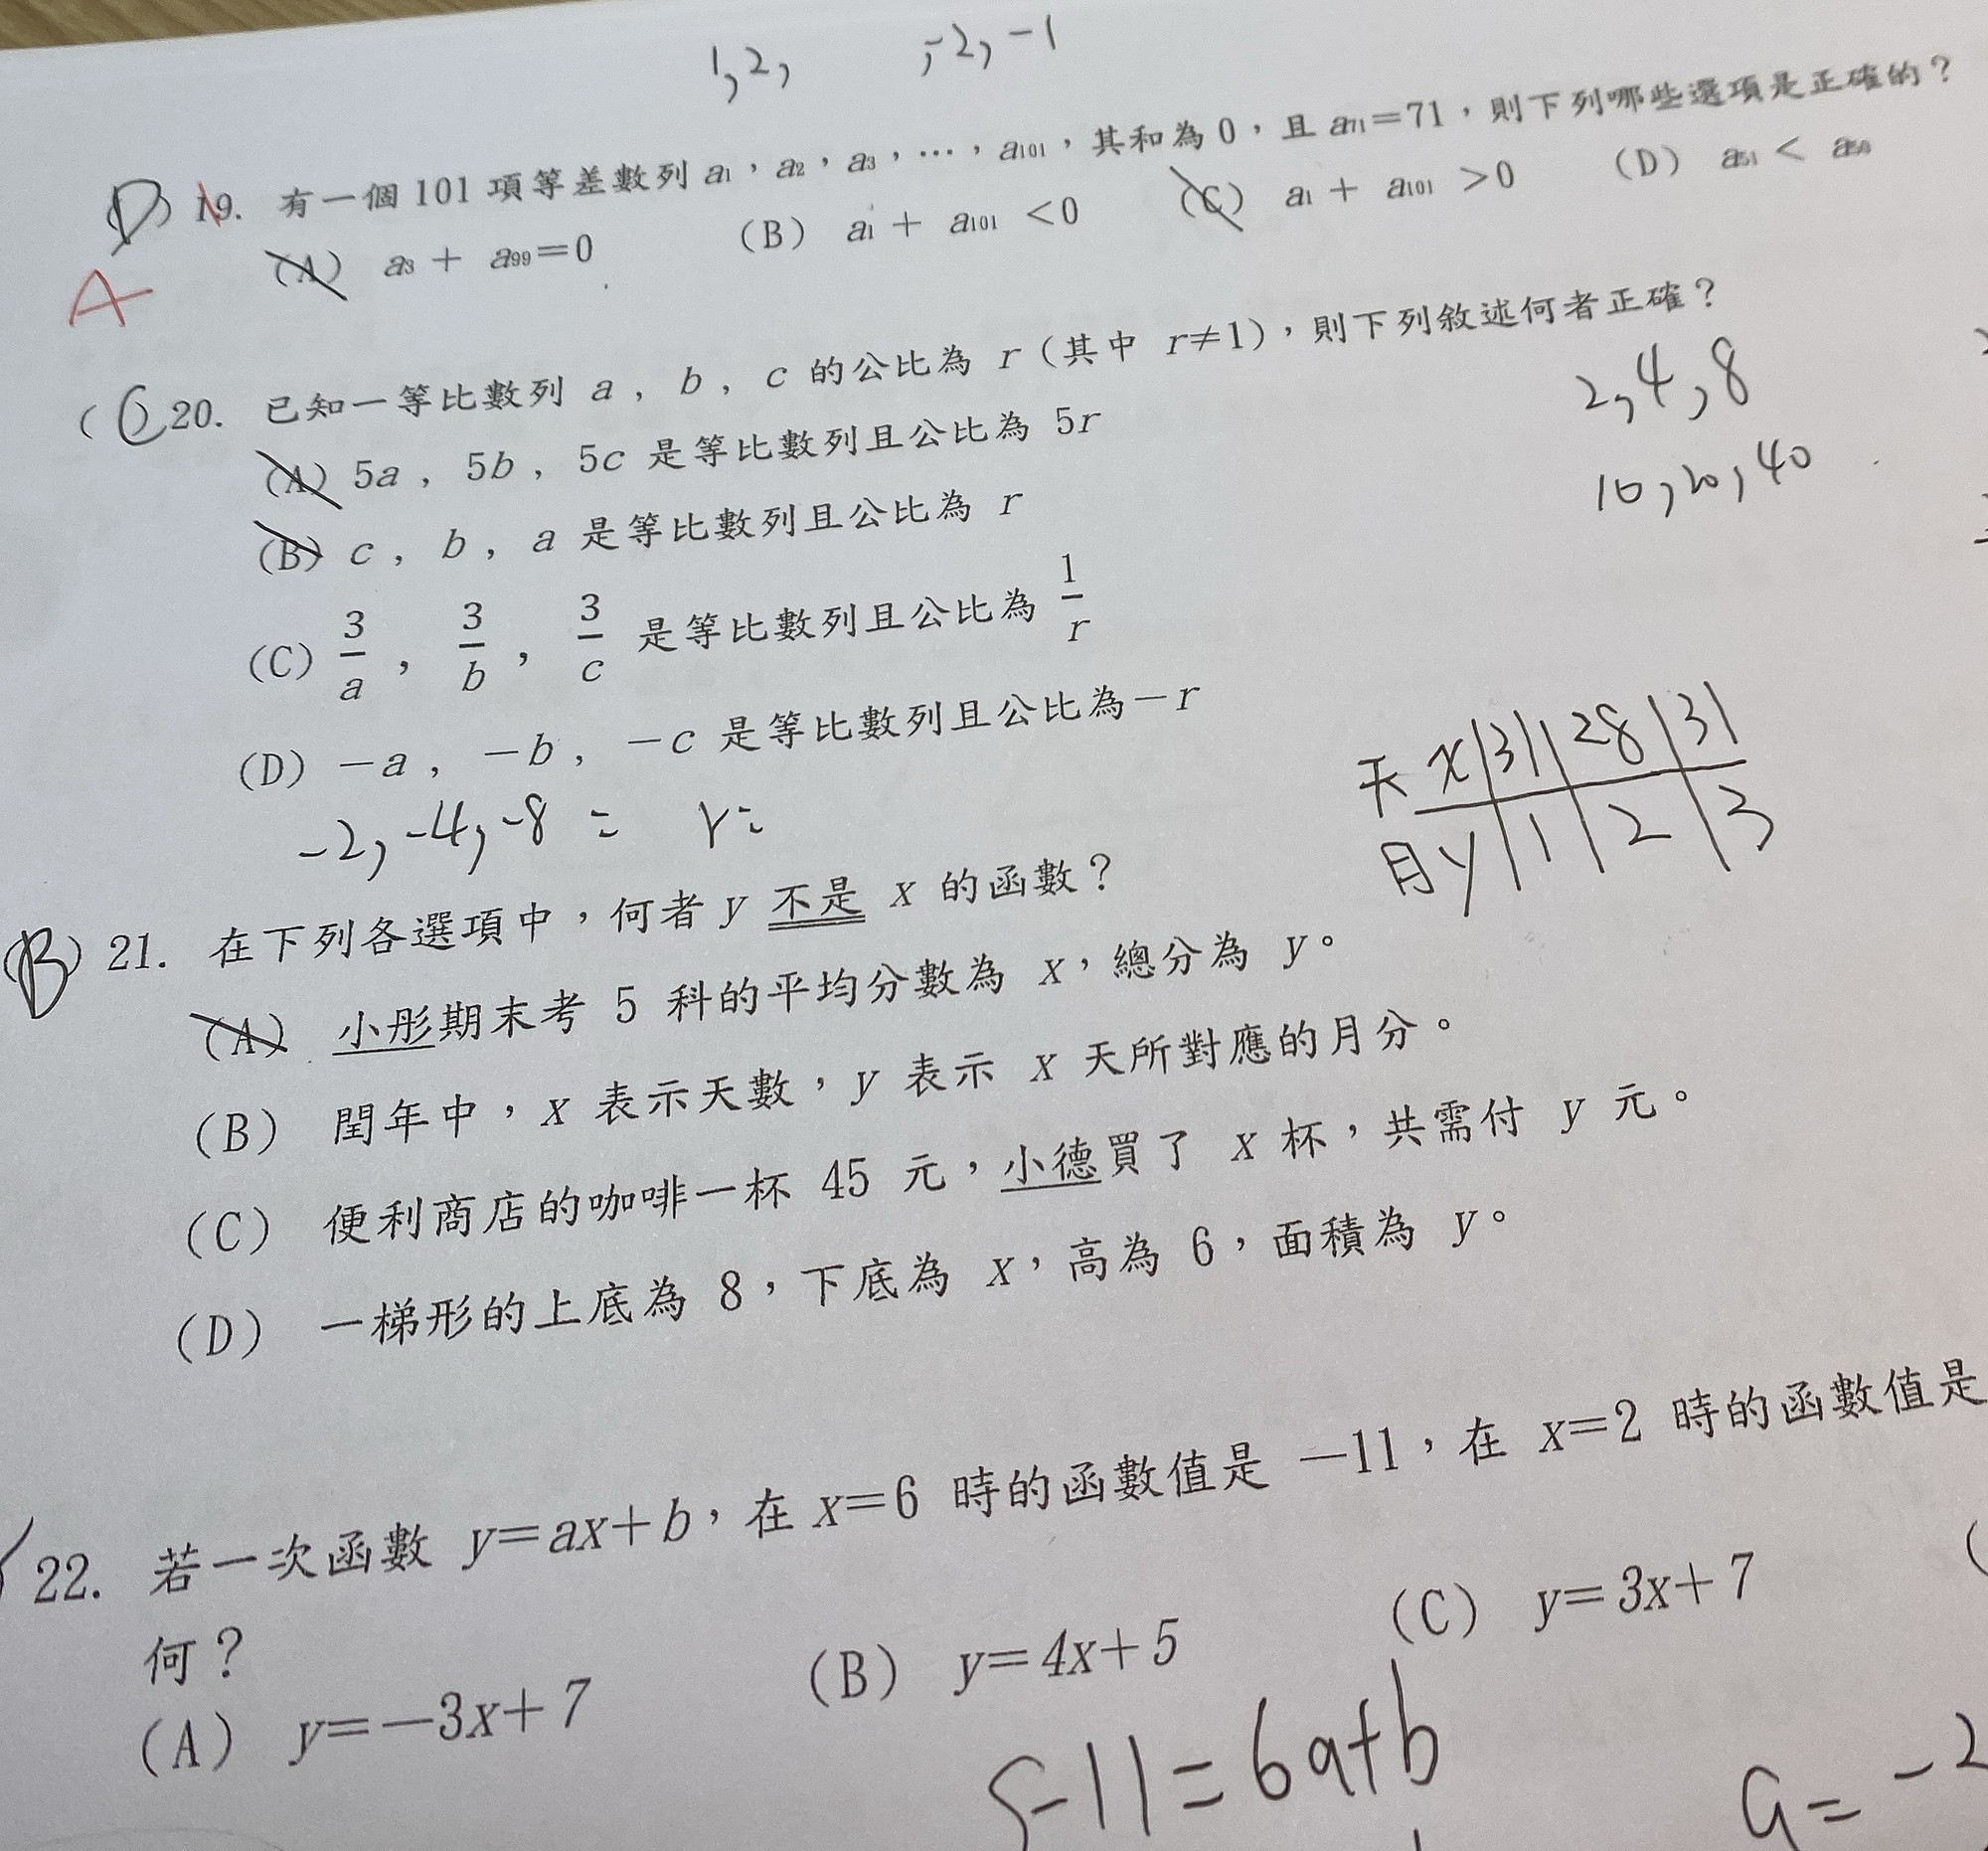 1,2, ,-2,-1
(D) 19. 有一個 101 項等差數列 a₁，a₂，a₃，⋯，a₁₀₁，其和為 0，且 a₇₁=71，則下列哪些選項是正確的？
A
(A) a₃ + a₉₉=0 (B) a₁ + a₁₀₁ <0 (C) a₁ + a₁₀₁ >0 (D) a₅₁ < a₅₀
(C) 20. 已知一等比數列 a , b , c 的公比為 r (其中 r≠1)，則下列敘述何者正確？
2,4,8
(A) 5a , 5b , 5c 是等比數列且公比為 5r
10,20,40
(B) c , b , a 是等比數列且公比為 r
(C) 3/a , 3/b , 3/c 是等比數列且公比為 1/r
(D) －a , －b , －c 是等比數列且公比為－r
-2,-4,-8 = r=
天 x|31|28|31
月 y|1|2|3
(B) 21. 在下列各選項中，何者 y 不是 x 的函數？
(A) 小彤期末考 5 科的平均分數為 x，總分為 y。
(B) 閏年中，x 表示天數，y 表示 x 天所對應的月分。
(C) 便利商店的咖啡一杯 45 元，小德買了 x 杯，共需付 y 元。
(D) 一梯形的上底為 8，下底為 x，高為 6，面積為 y。
22. 若一次函數 y=ax+b，在 x=6 時的函數值是 －11，在 x=2 時的函數值是
何？
(A) y=－3x+7 (B) y=4x+5 (C) y=3x+7 (
{-11=6a+b
a=-2